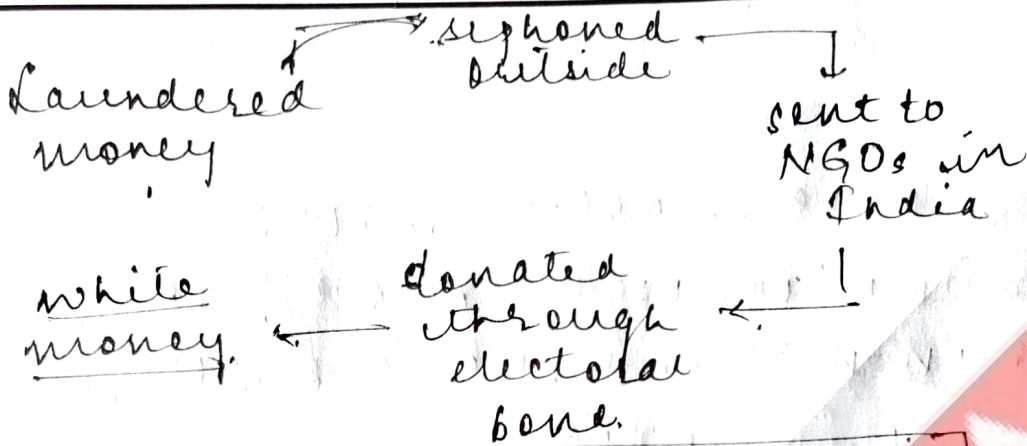 Laundered
money
siphoned
outside
sent to
NGOs in
India
donated
through
electoral
bond.
white
money.